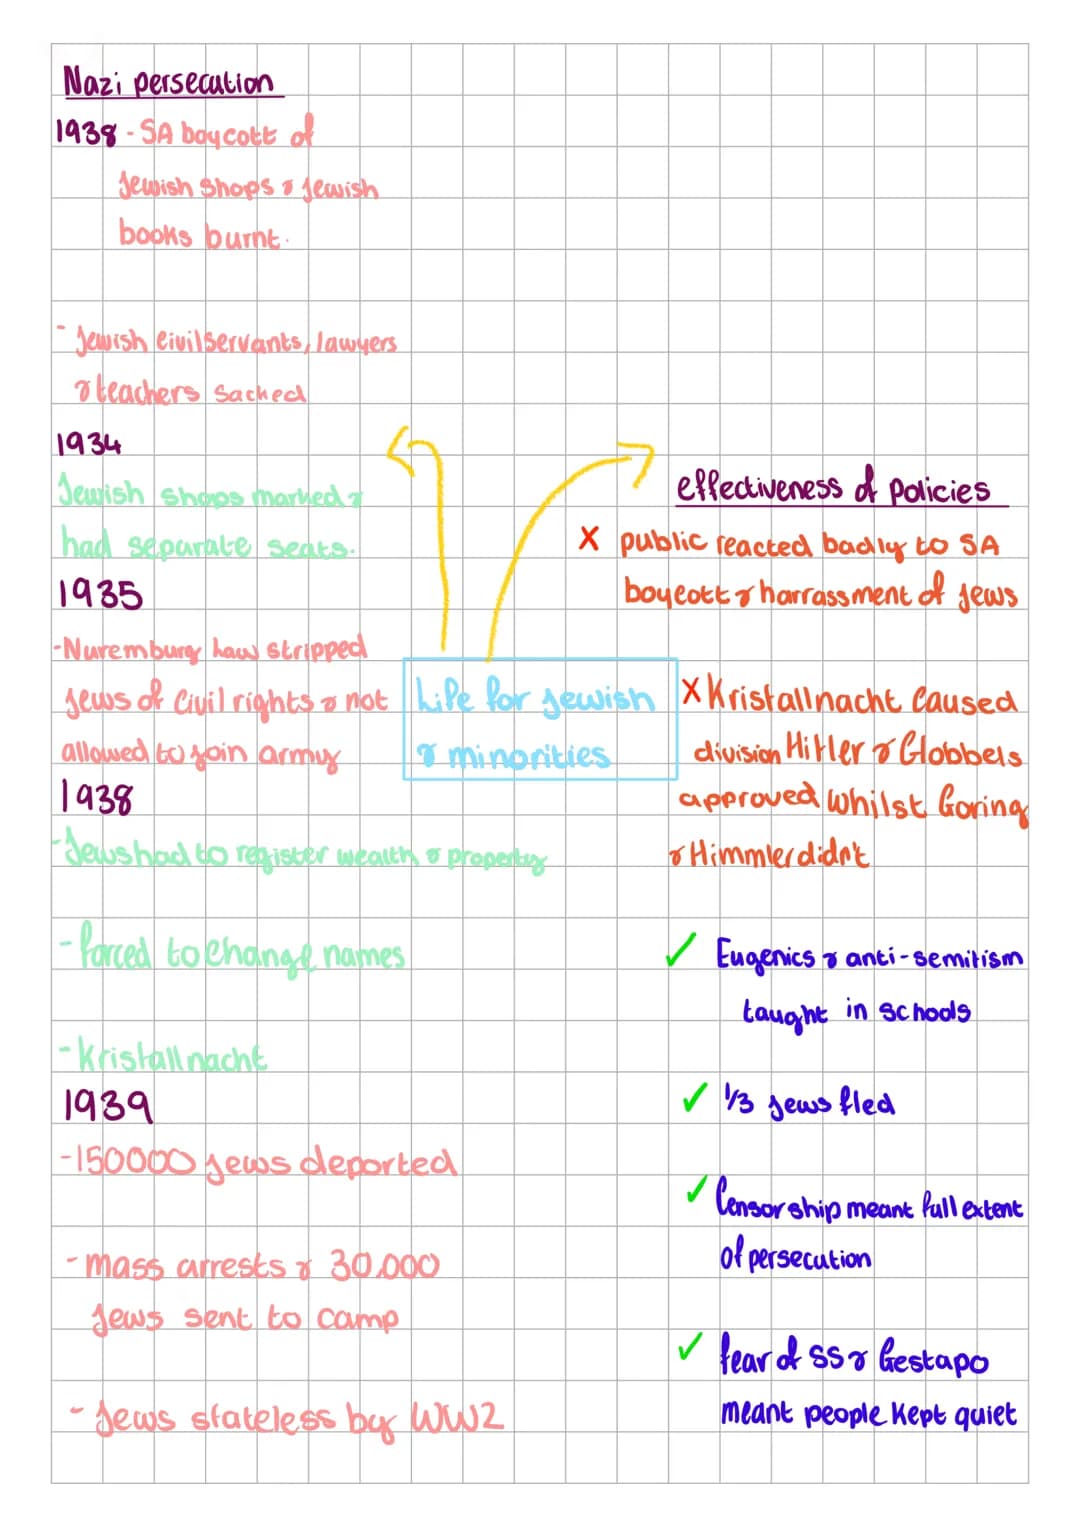 Nazi persecution
1938 - SA boycott of
Jewish shops & Jewish
books burnt.
- Jewish civil servants, lawyers
& teachers sacked
1934
Jewish shops marked &
had separate seats.
1935
- Nuremburg law stripped
Jews of civil rights & not
allowed to join army
1938
- Jews had to register wealth & property
- forced to change names
- Kristallnacht
1939
- 150000 Jews deported
- mass arrests & 30,000
Jews sent to camp
- Jews stateless by WW2
Life for Jewish
& minorities
effectiveness of policies
X public reacted badly to SA
boycott & harrassment of Jews
X Kristallnacht caused
division Hitler & Globbels
approved whilst Goring
& Himmler didn't
✓ Eugenics & anti-semitism
taught in schools
✓ 1/3 Jews fled
✓ Censorship meant full extent
of persecution
✓ fear of SS & Gestapo
meant people kept quiet